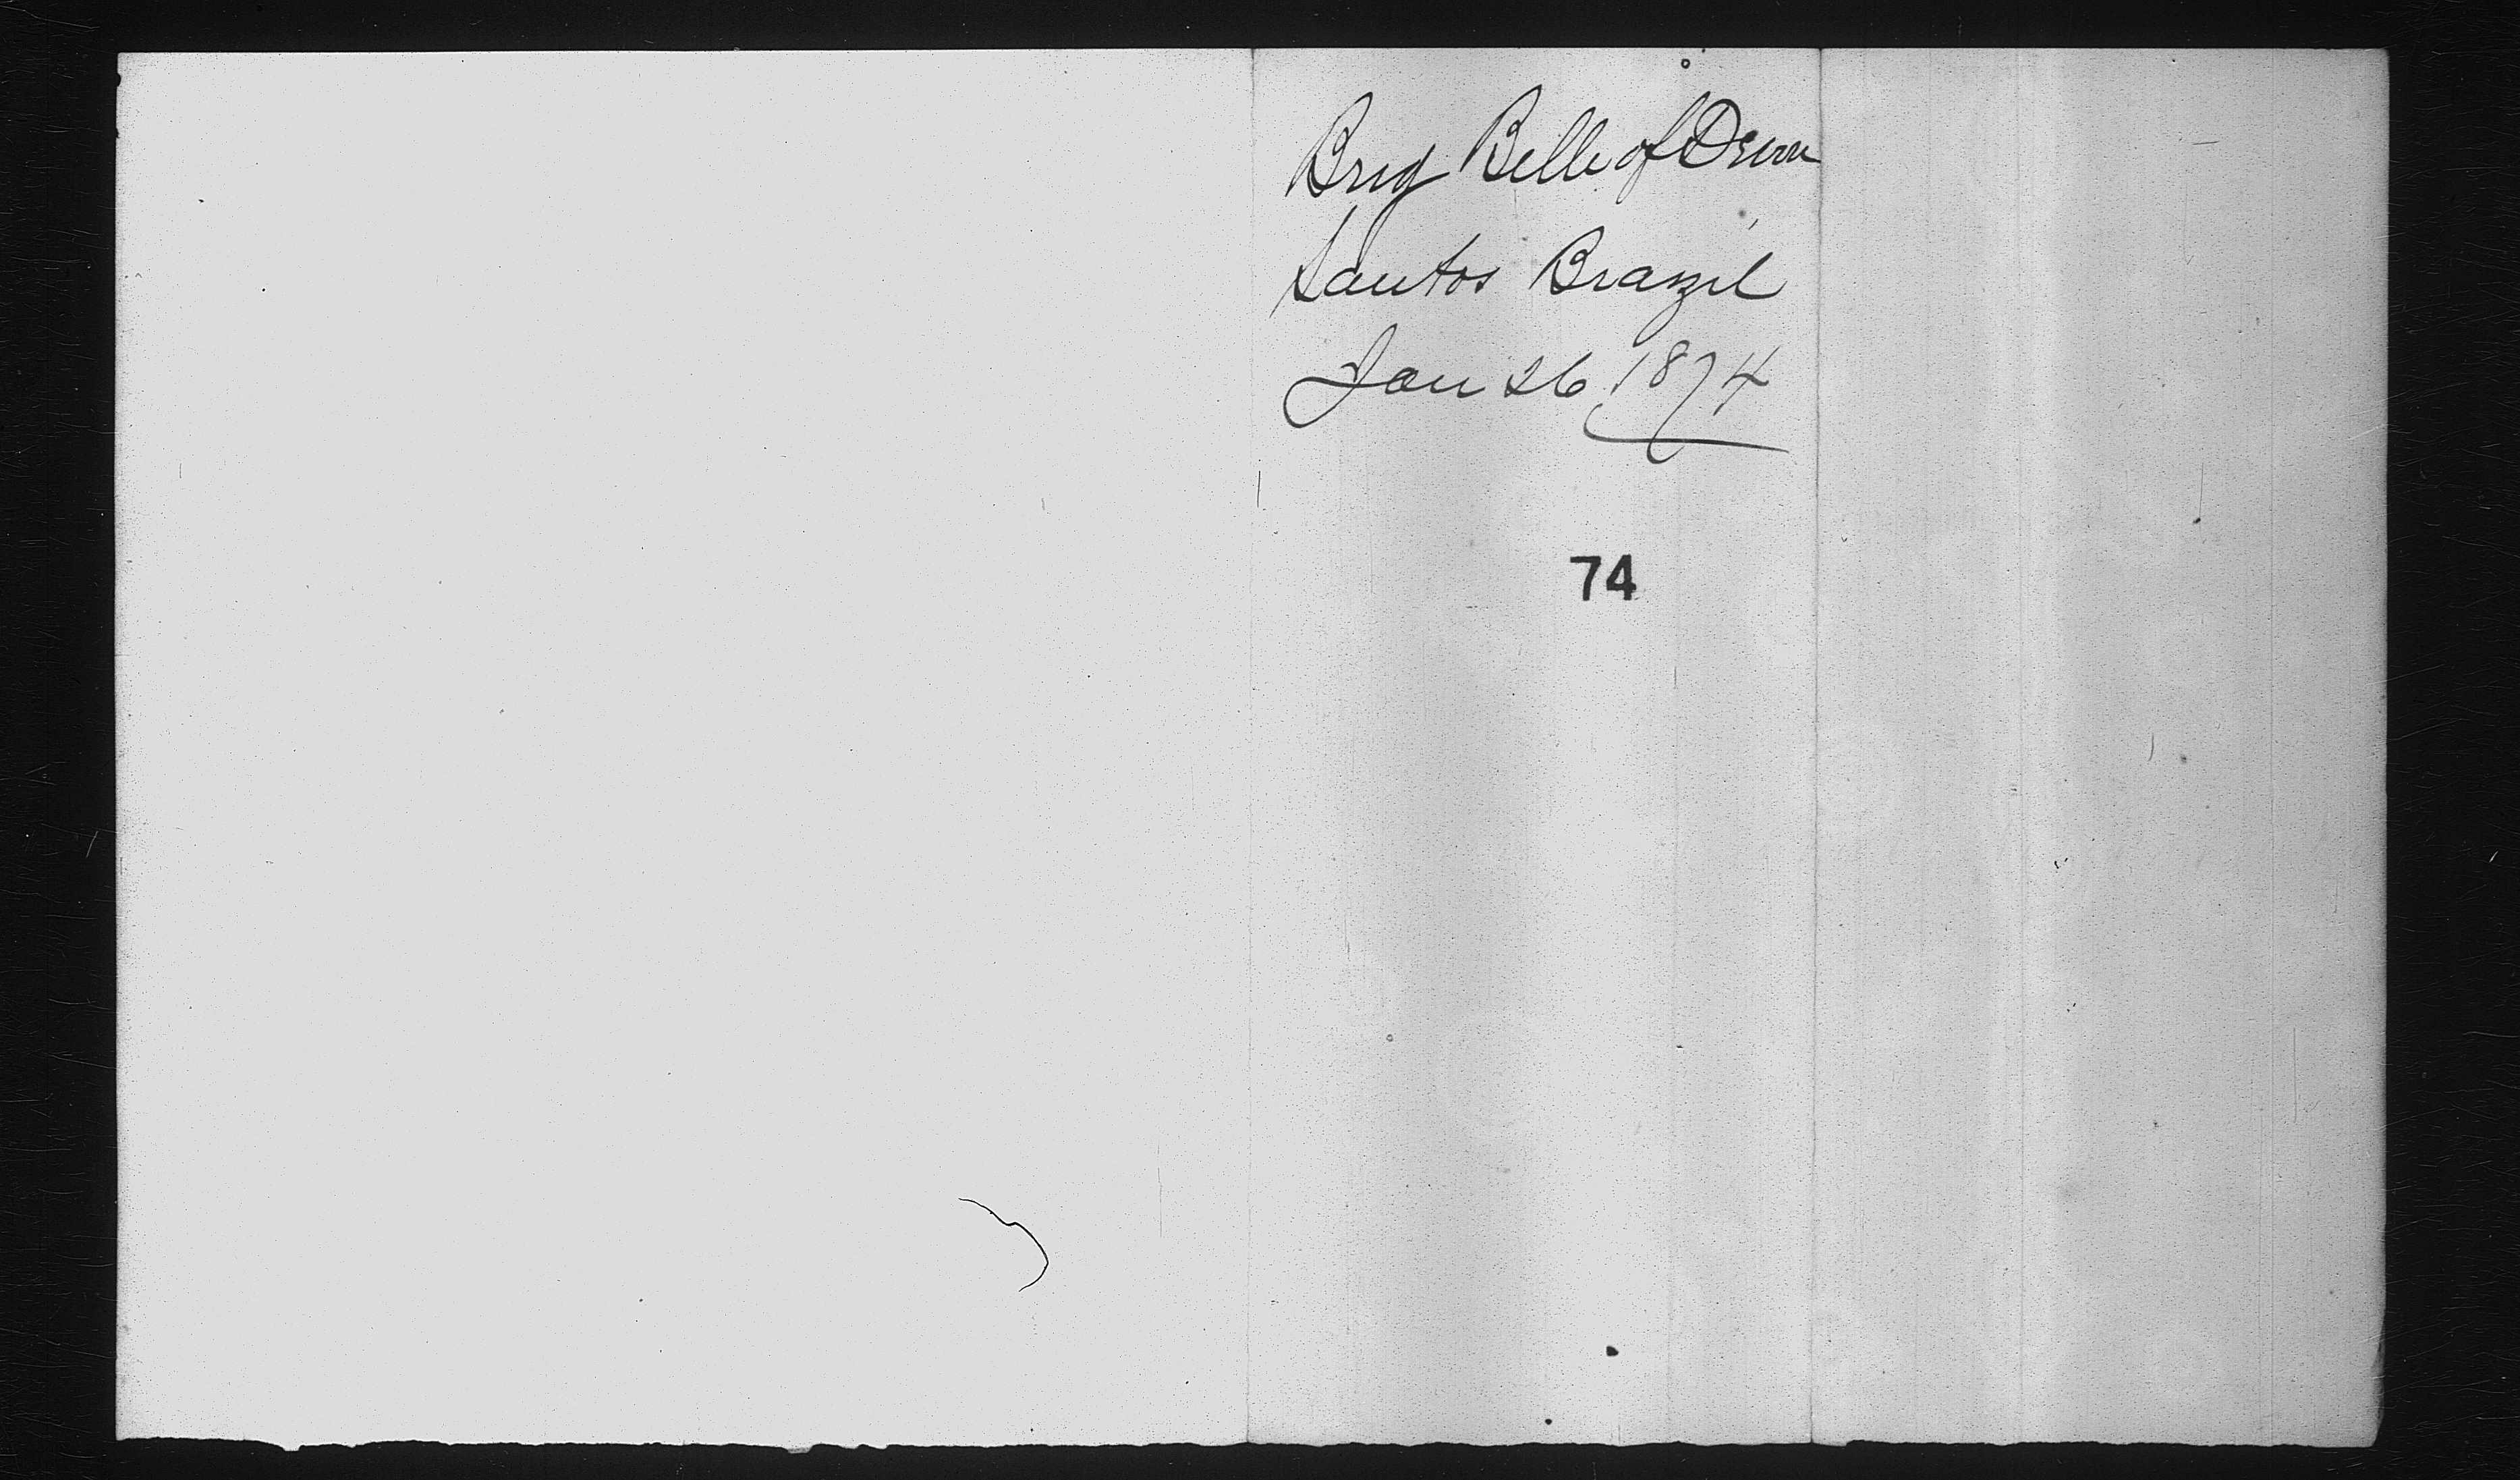 Brig Belle of Devon
Santos Brazil
Jan 26 1874
74